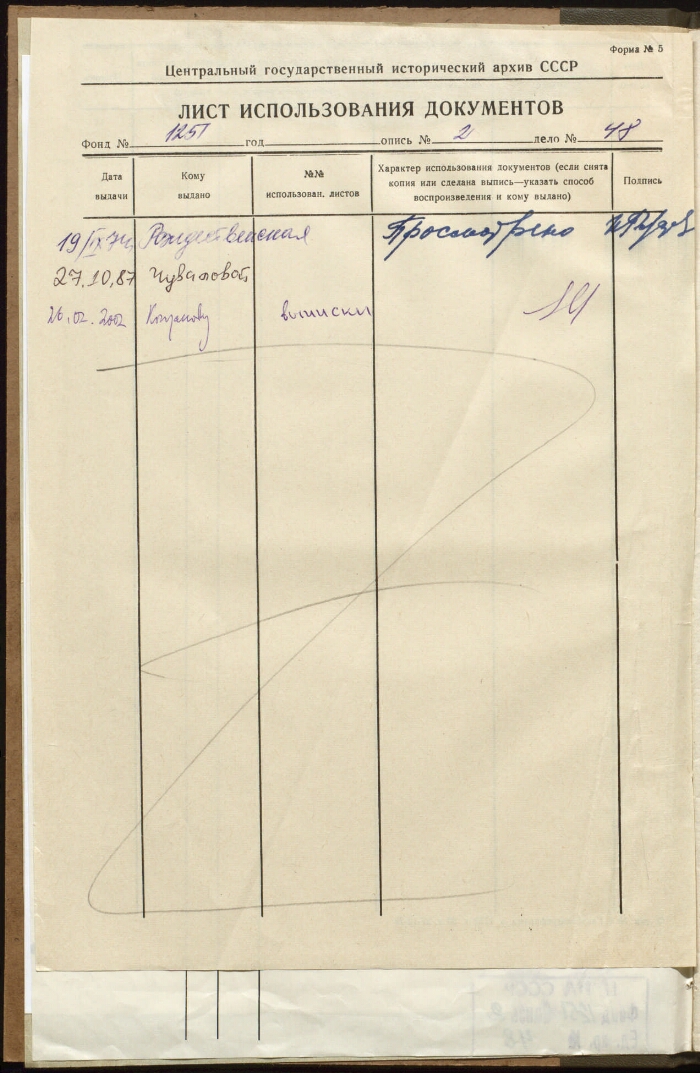 Форма № 5
Центральный государственный исторический архив СССР
ЛИСТ ИСПОЛЬЗОВАНИЯ ДОКУМЕНТОВ
Фонд № 1251 год опись № 2 дело № 48
Дата выдачи
Кому выдано
№№ использован. листов
Характер использования документов (если снята копия или сделана выпись—указать способ воспроизведения и кому выдано)
Подпись
19/IX 74 Рождественская Просмотрено
27.10.87
26.02.2002 выписки